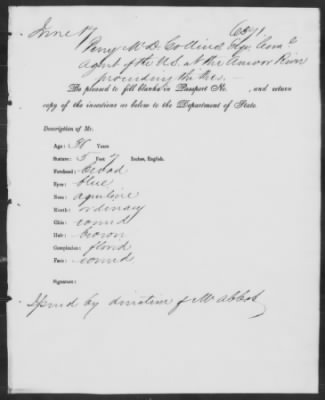 June 17 6871
Perry McD Collins Esqr, Coml
Agent of the U.S. at the Amoor River
providing the Nos. —
Be pleased to fill blanks in Passport No. , and return
copy of the insertions as below to the Department of State.
Description of Mr.
Age:
Stature: 5 Feet 7 Inches, English.
Forehead: broad
Eyes: blue
Nose: aquiline
Mouth: ordinary
Chin: round
Hair: brown
Complexion: florid
Face: round
Signature:
Issued by direction of Mr Abbot